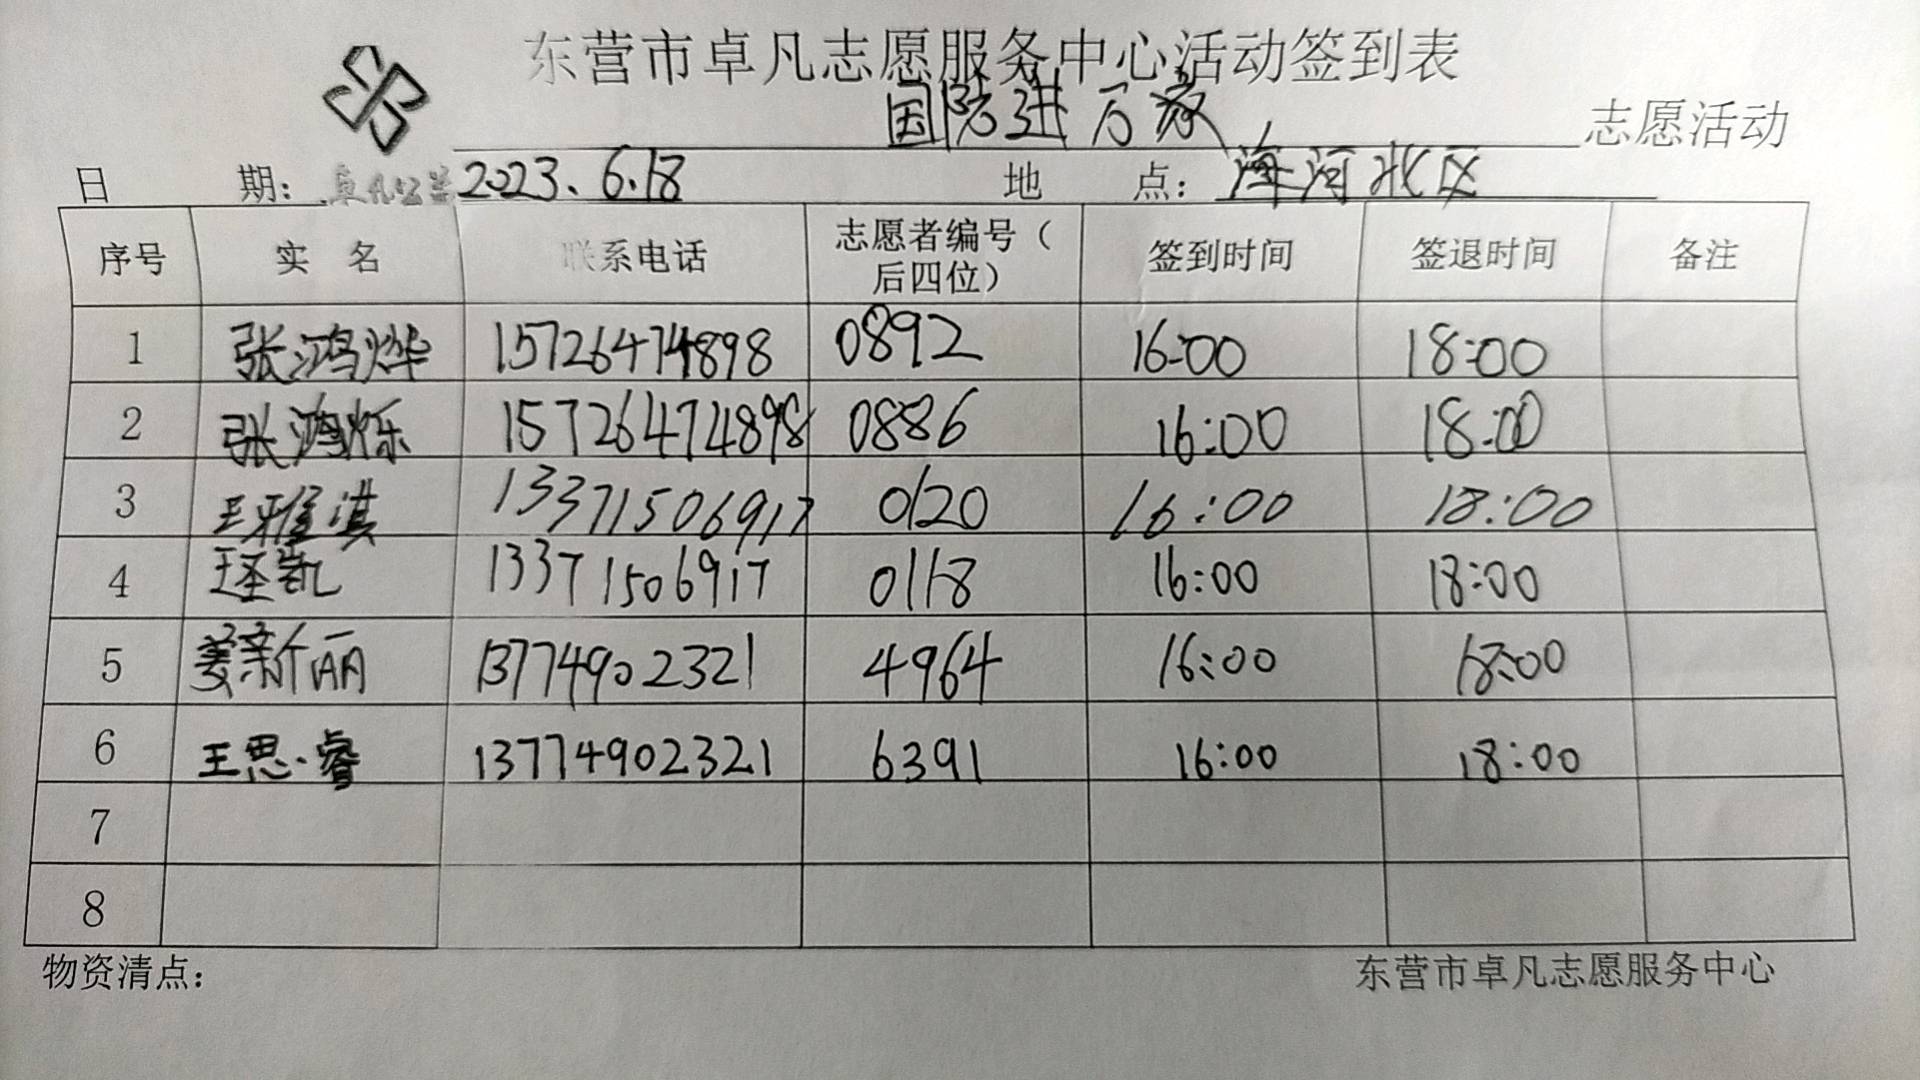 东营市卓凡志愿服务中心活动签到表
国防进万家 志愿活动
卓凡公益
日 期： 2023.6.18 地 点： 海河北区
序号 实 名 联系电话 志愿者编号（后四位） 签到时间 签退时间 备注
1 张鸿烨 15726474898 0892 16:00 18:00
2 张鸿烁 15726474898 0886 16:00 18:00
3 王雅淇 13371506917 0120 16:00 18:00
4 王圣凯 13371506917 0118 16:00 18:00
5 姜新丽 13774902321 4964 16:00 18:00
6 王思睿 13774902321 6391 16:00 18:00
7
8
物资清点： 东营市卓凡志愿服务中心